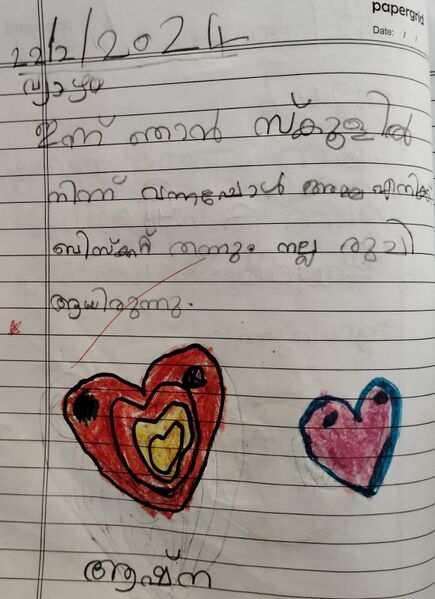 papergrid
Date: / /
22/2/2024
വ്യാഴം
ഇന്ന് ഞാൻ സ്കൂളിൽ
നിന്ന് വന്നപ്പോൾ അമ്മ എനിക്ക്
ബിസ്ക്കറ്റ് തന്നു. നല്ല രുചി
ആയിരുന്നു.
ആഷ്ന